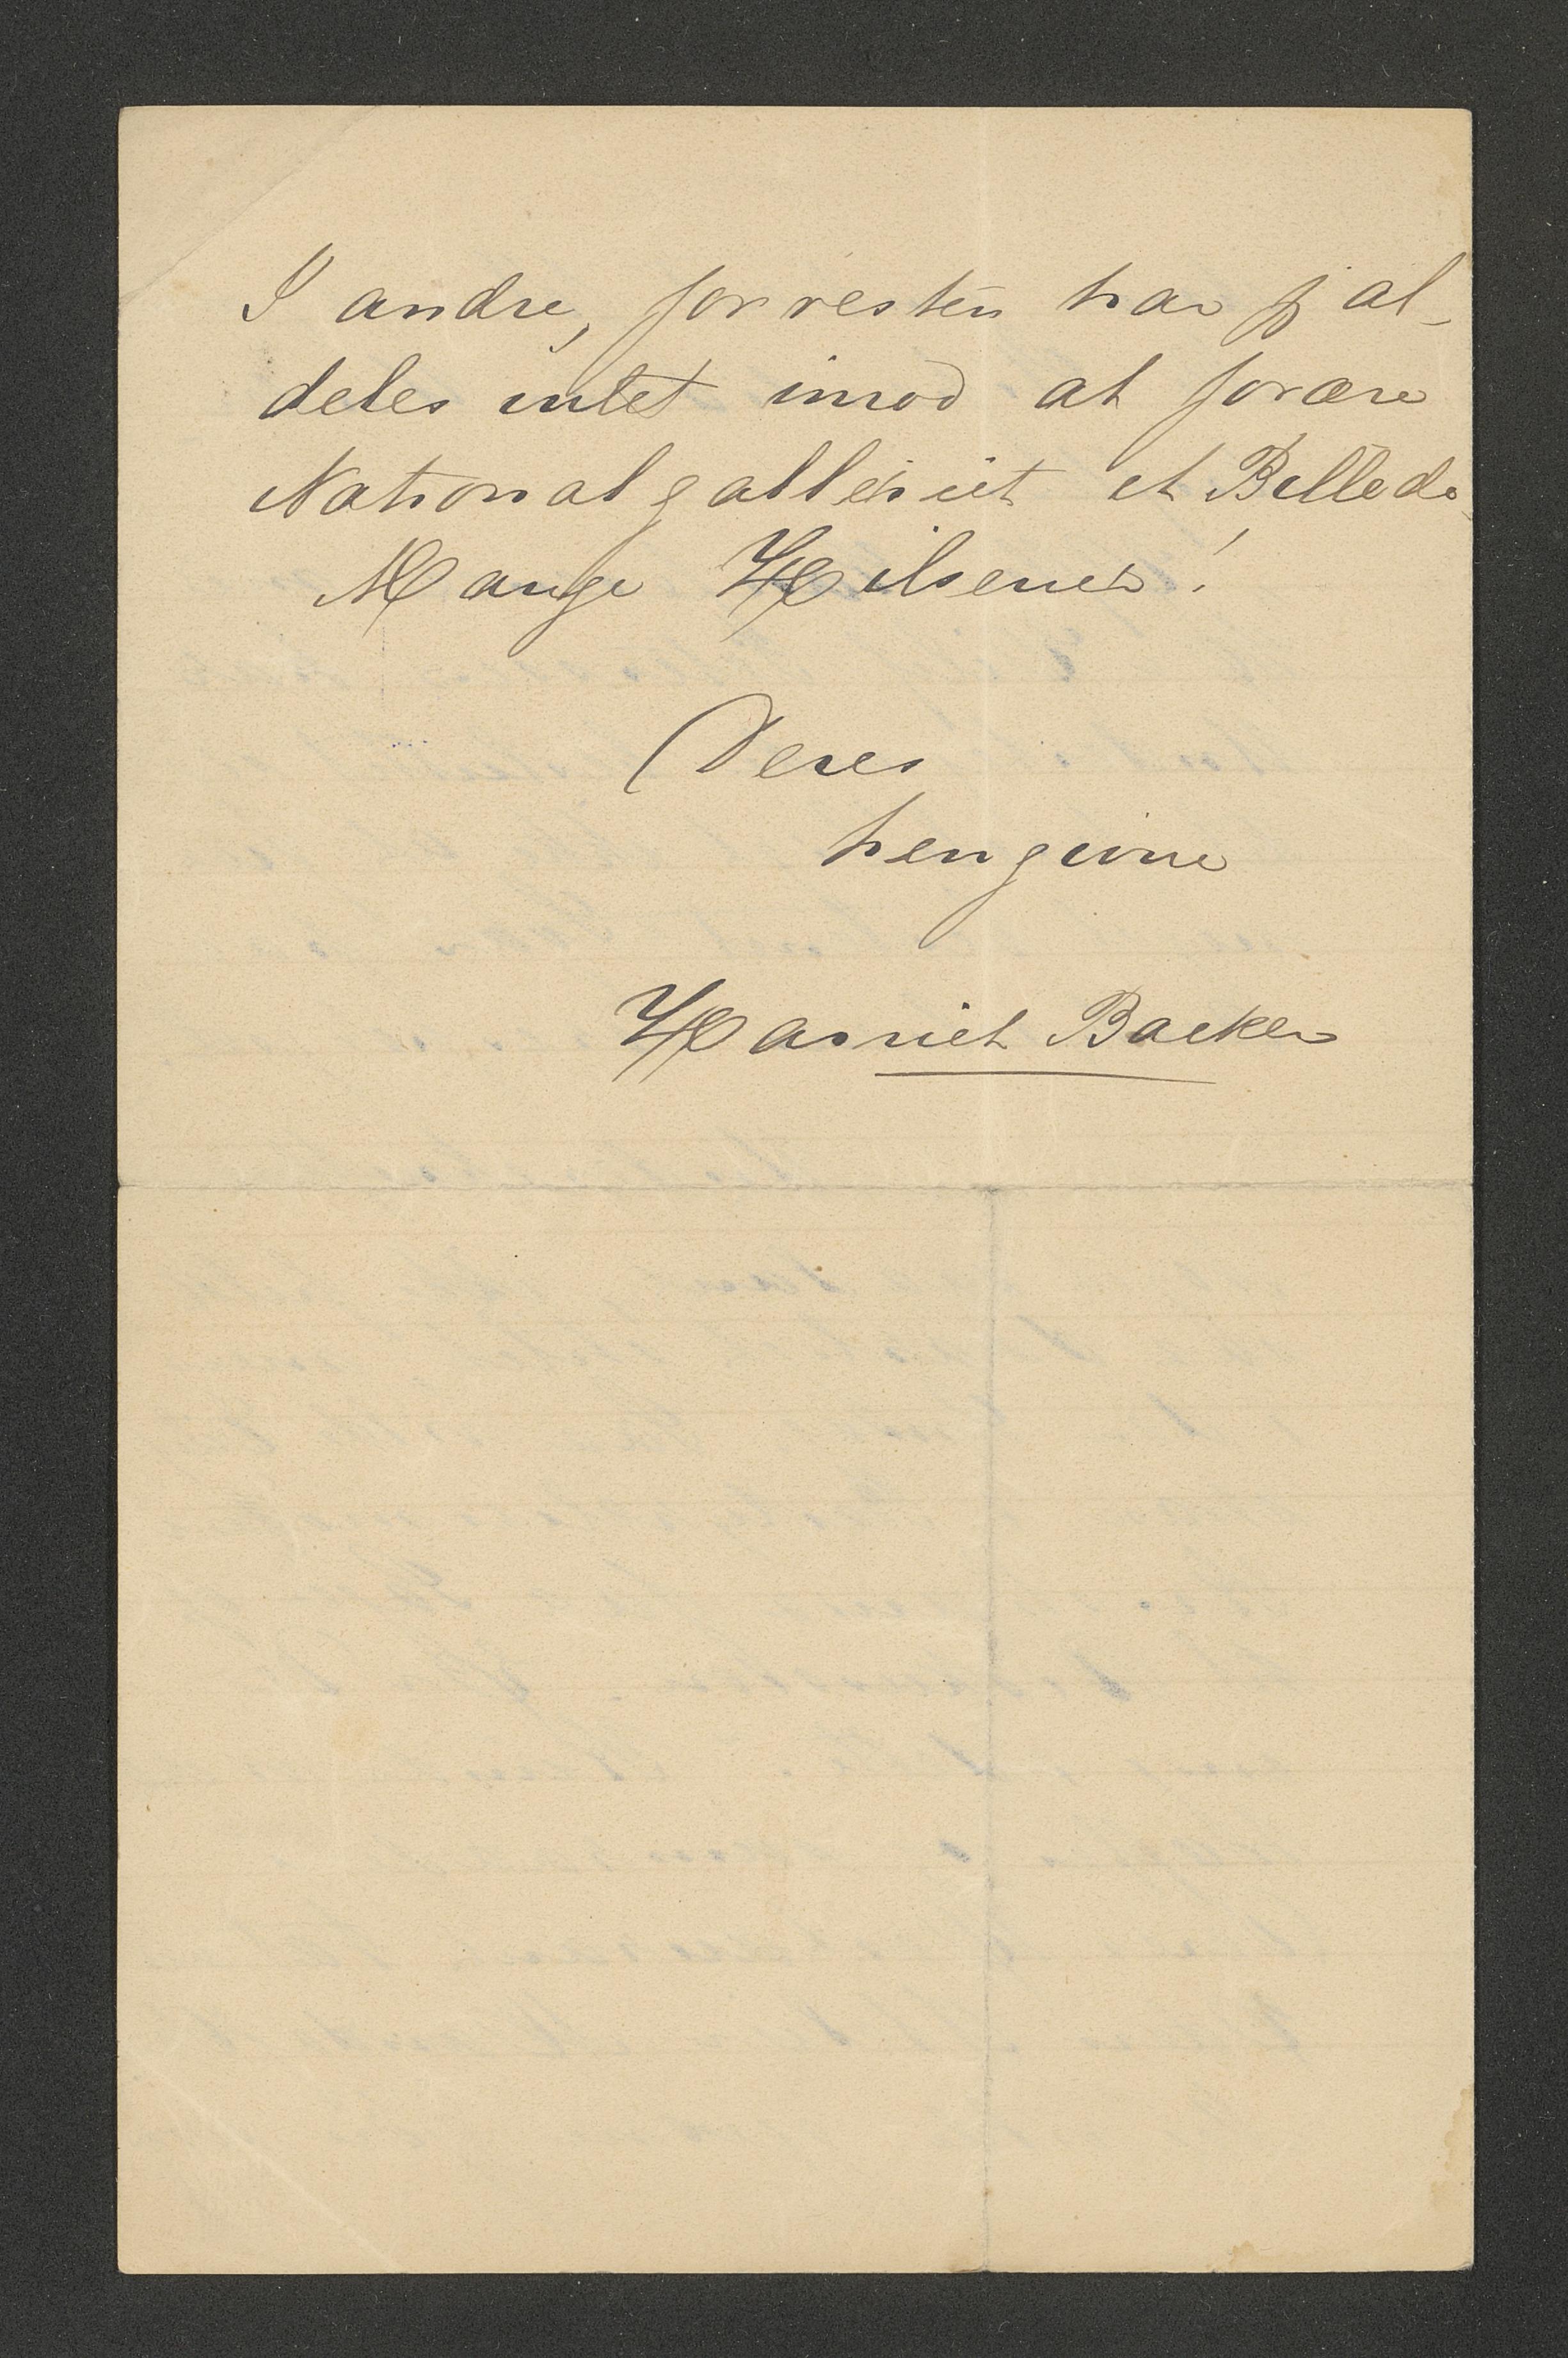 I andre, forresten har jeg al-
deles intet imod at forære
Nationalgalleriet et Billede.
Mange Hilsener!
Deres
hengivne
Harriet Backer